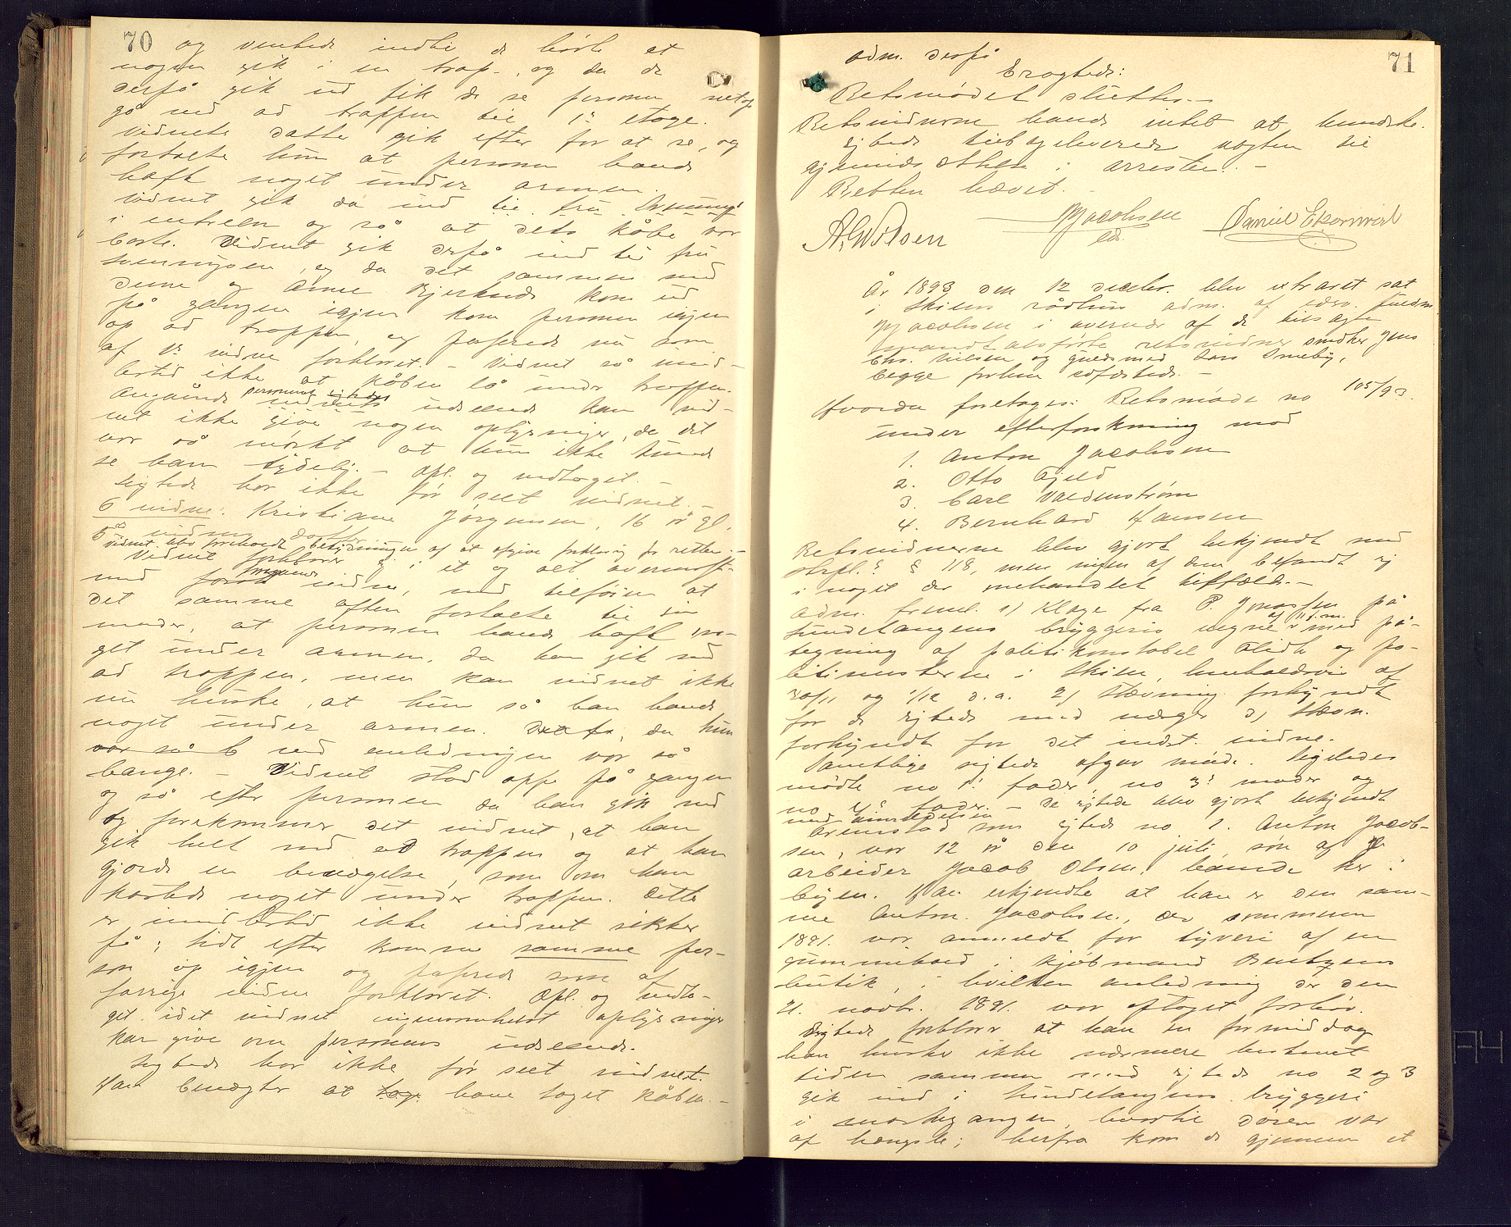 70
og ventede indtil de hørte at
nogen gik i en trap., og da de
derpå gik ud fik de se personen netop
gå ned ad trappen til 1ste etage.
Vidnets datter gik efter for at se, og
fortalte hun at personen havde
havt noget under armen.
Vidnet gik da ind til fru
i entreen og så at dets kåbe var
borte. Vidnet gik derpå ind til fru
svenningsen, og da det sammen med
denne og Anne Bjerknes kom ud
på gangen igjen kom personen igjen
op ad trappen, og passerede nu som
af 4de vidne forklaret. – Vidnet så imid-
lertid ikke at kåben lå under trappen.
Angående personens udseende kan vid-
net ikke give nogen oplysninger, da det
var så mørkt at hun ikke kunde
se ham tydelig. – Opl. og vedtaget. –
Sigtede har ikke før seet vidnet. –
6 vidne. Kristiane Jørgensen, 16 år gl.
vidnet blev foreholdt betydningen af at afgive forklaring for retten. –
Vidnet forklarer sig i et og alt overensst.
med forrige vidne, med tilføien at
det samme aften fortalte til sin
moder, at personen havde havt no-
get under armen, da han gik ned
ad trappen, men kan vidnet ikke
nu huske, at hun så han havde
noget under armen. da hun
var så ved anledningen var så
bange. – Vidnet stod oppe på gangen
og så efter personen da han gik ned
og forekommer det vidnet, at han
gik helt ned ad trappen og at han
gjorde en bevægelse, som om han
kastede noget under trappen. Dette
er imidlertid ikke vidnet sikker
på; lidt efter kom samme per-
son op igjen og passerede som af
forrige vidne forklaret. Opl. og vedta-
get, idet vidnet ingensomhelst oplysninger
kan give om personens udseende.
Sigtede har ikke før seet vidnet.
Han benægter at have taget kåben. –
71
adm. derpå
Eragtede:
Retsmødet sluttes. –
Retsvidnerne havde intet at bemærke.
Sigtede tilbageleveredes vagten til
gjenindsættelse i arresten. –
Retten hævet.
A. Wilsen Jacobsen ed. Daniel Ekornrød
År 1893 den 12 decbr. blev extraret sat
i Skiens rådhus adm. af edsv. fuldm.
Jacobsen i overvær af de tilsagte
mandtalsførte retsvidner smedker Jens
Chr. Nielsen og guldsmed Lars Smeby,
begge forhen edfæstede. –
Hvorda foretoges: Retsmøde no 105/93.
under efterforskning mod
1. Anton Jacobsen
2. Otto Gjeld
3. Carl Waldenstrøm
4. Bernhard Hansen
Retsvidnerne blev gjort bekjendt med
strpl.s § 118, men ingen af dem befandt sig
i noget der omhandlet tilfælde. –
Adm. freml. 1) Klage fra P. Jonassen på
Hundetangens bryggeris vegne af 11/ m. med på-
tegning af politikonstabel Flidh og po-
litimesteren i Skien, henholdsvis af
30/11 og 1/12 d.a. 2) Stævning forkyndt
for de sigtede med værger 3) Stævn.
forkyndt for det indst. vidne.
Samtlige sigtede afgav møde. Ligeledes
mødte no 1s fader, no 3s moder og
no 4s fader. – De sigtede blev gjort bekjendt
med anmeldelsen
Fremstod som sigtede no 1. Anton Jacob-
sen, var 12 år den 10 juli søn af
arbeider Jacob Olsen, boende her i
byen. Han erkjendte at han er den sam-
me Anton Jacobsen, der sommeren
1891 var anmeldt for tyveri af en
gummibold i kjøbmand Bentzens
butik, i hvilken anledning der den
21. novbr. 1891 var optaget forhør.
Sigtede forklarer at han en formiddag
han huske ikke nærmere bestemt
tiden sammen med sigtede no 2 og 3
gik ind i Hundetangens bryggeri
i mørkegangen, hvortil døren var
af hængsle; herfra kom de gjennem et